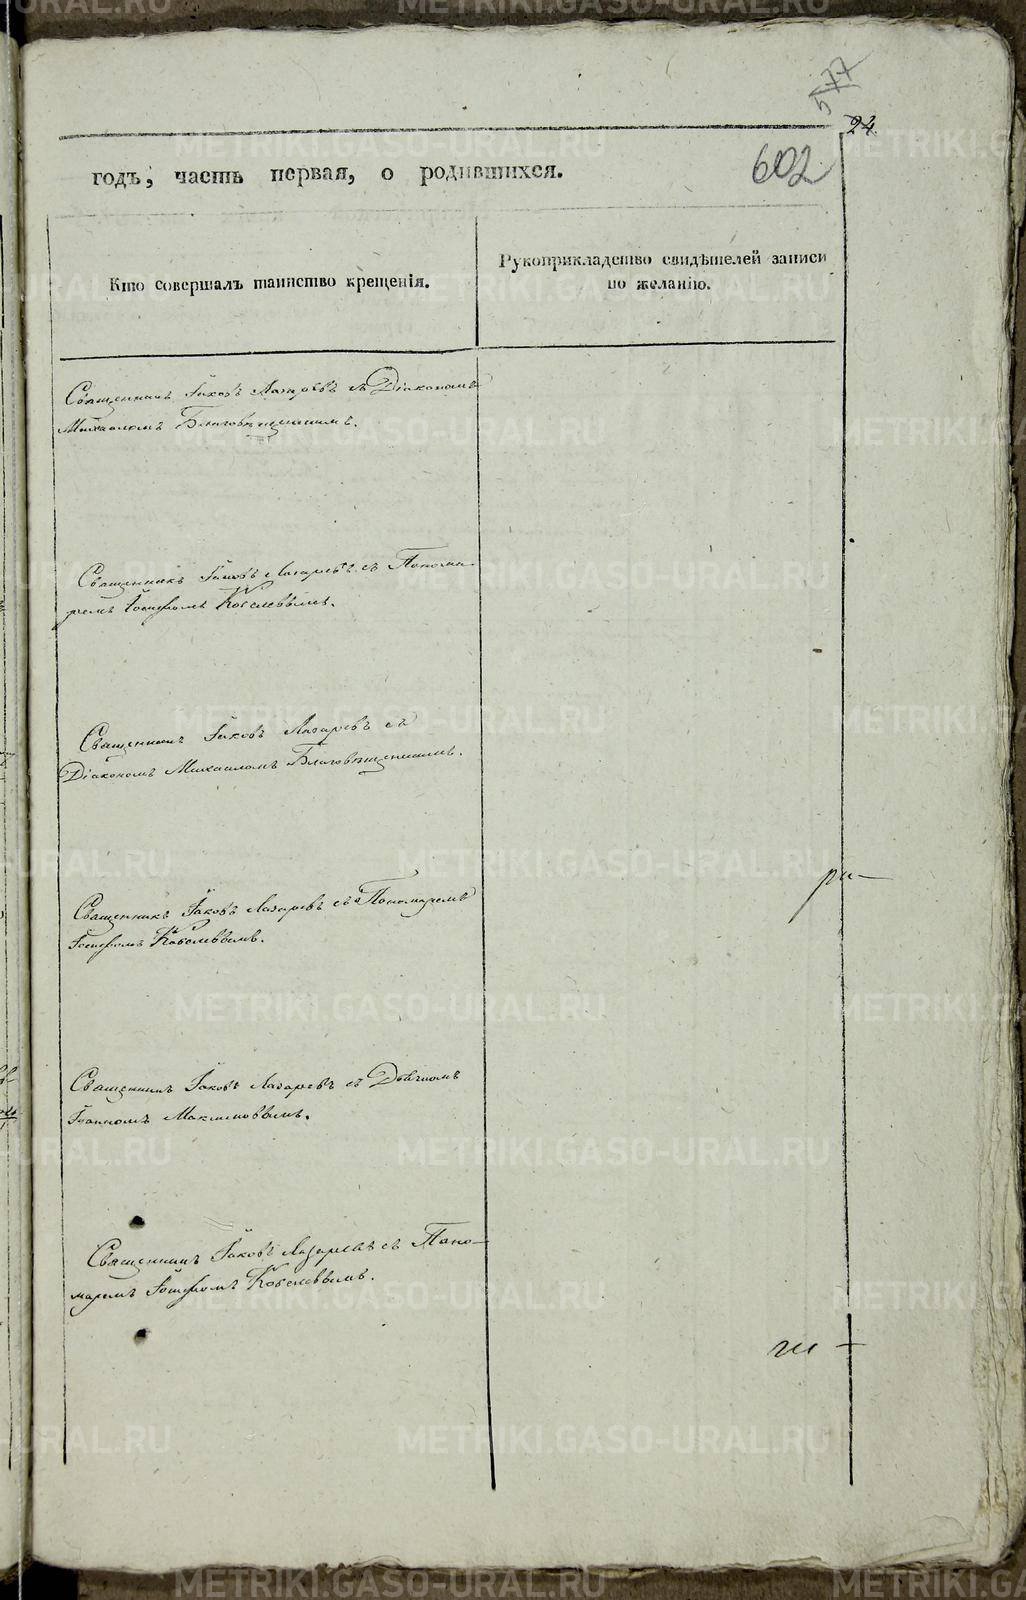 577
24.
602
годъ, часть первая, о родившихся.
Кто совершалъ таинство крещенія.
Рукоприкладство свидѣтелей записи
по желанію.
Священникъ Іаковъ Лазаревъ съ Діакономъ
Михаиломъ Благовѣщенскимъ.
Священникъ Іаковъ Лазаревъ съ Понома-
ремъ Іосифомъ Кобелевымъ.
Священникъ Іаковъ Лазаревъ съ
Діакономъ Михаиломъ Благовѣщенскимъ.
Священникъ Іаковъ Лазаревъ съ Пономаремъ
Іосифомъ Кобелевымъ.
ри-
Священникъ Іаковъ Лазаревъ съ Дьячкомъ
Іоанномъ Максимовымъ.
Священникъ Іаковъ Лазаревъ съ Поно-
маремъ Іосифомъ Кобелевымъ.
METRIKI.GASO-URAL.RU